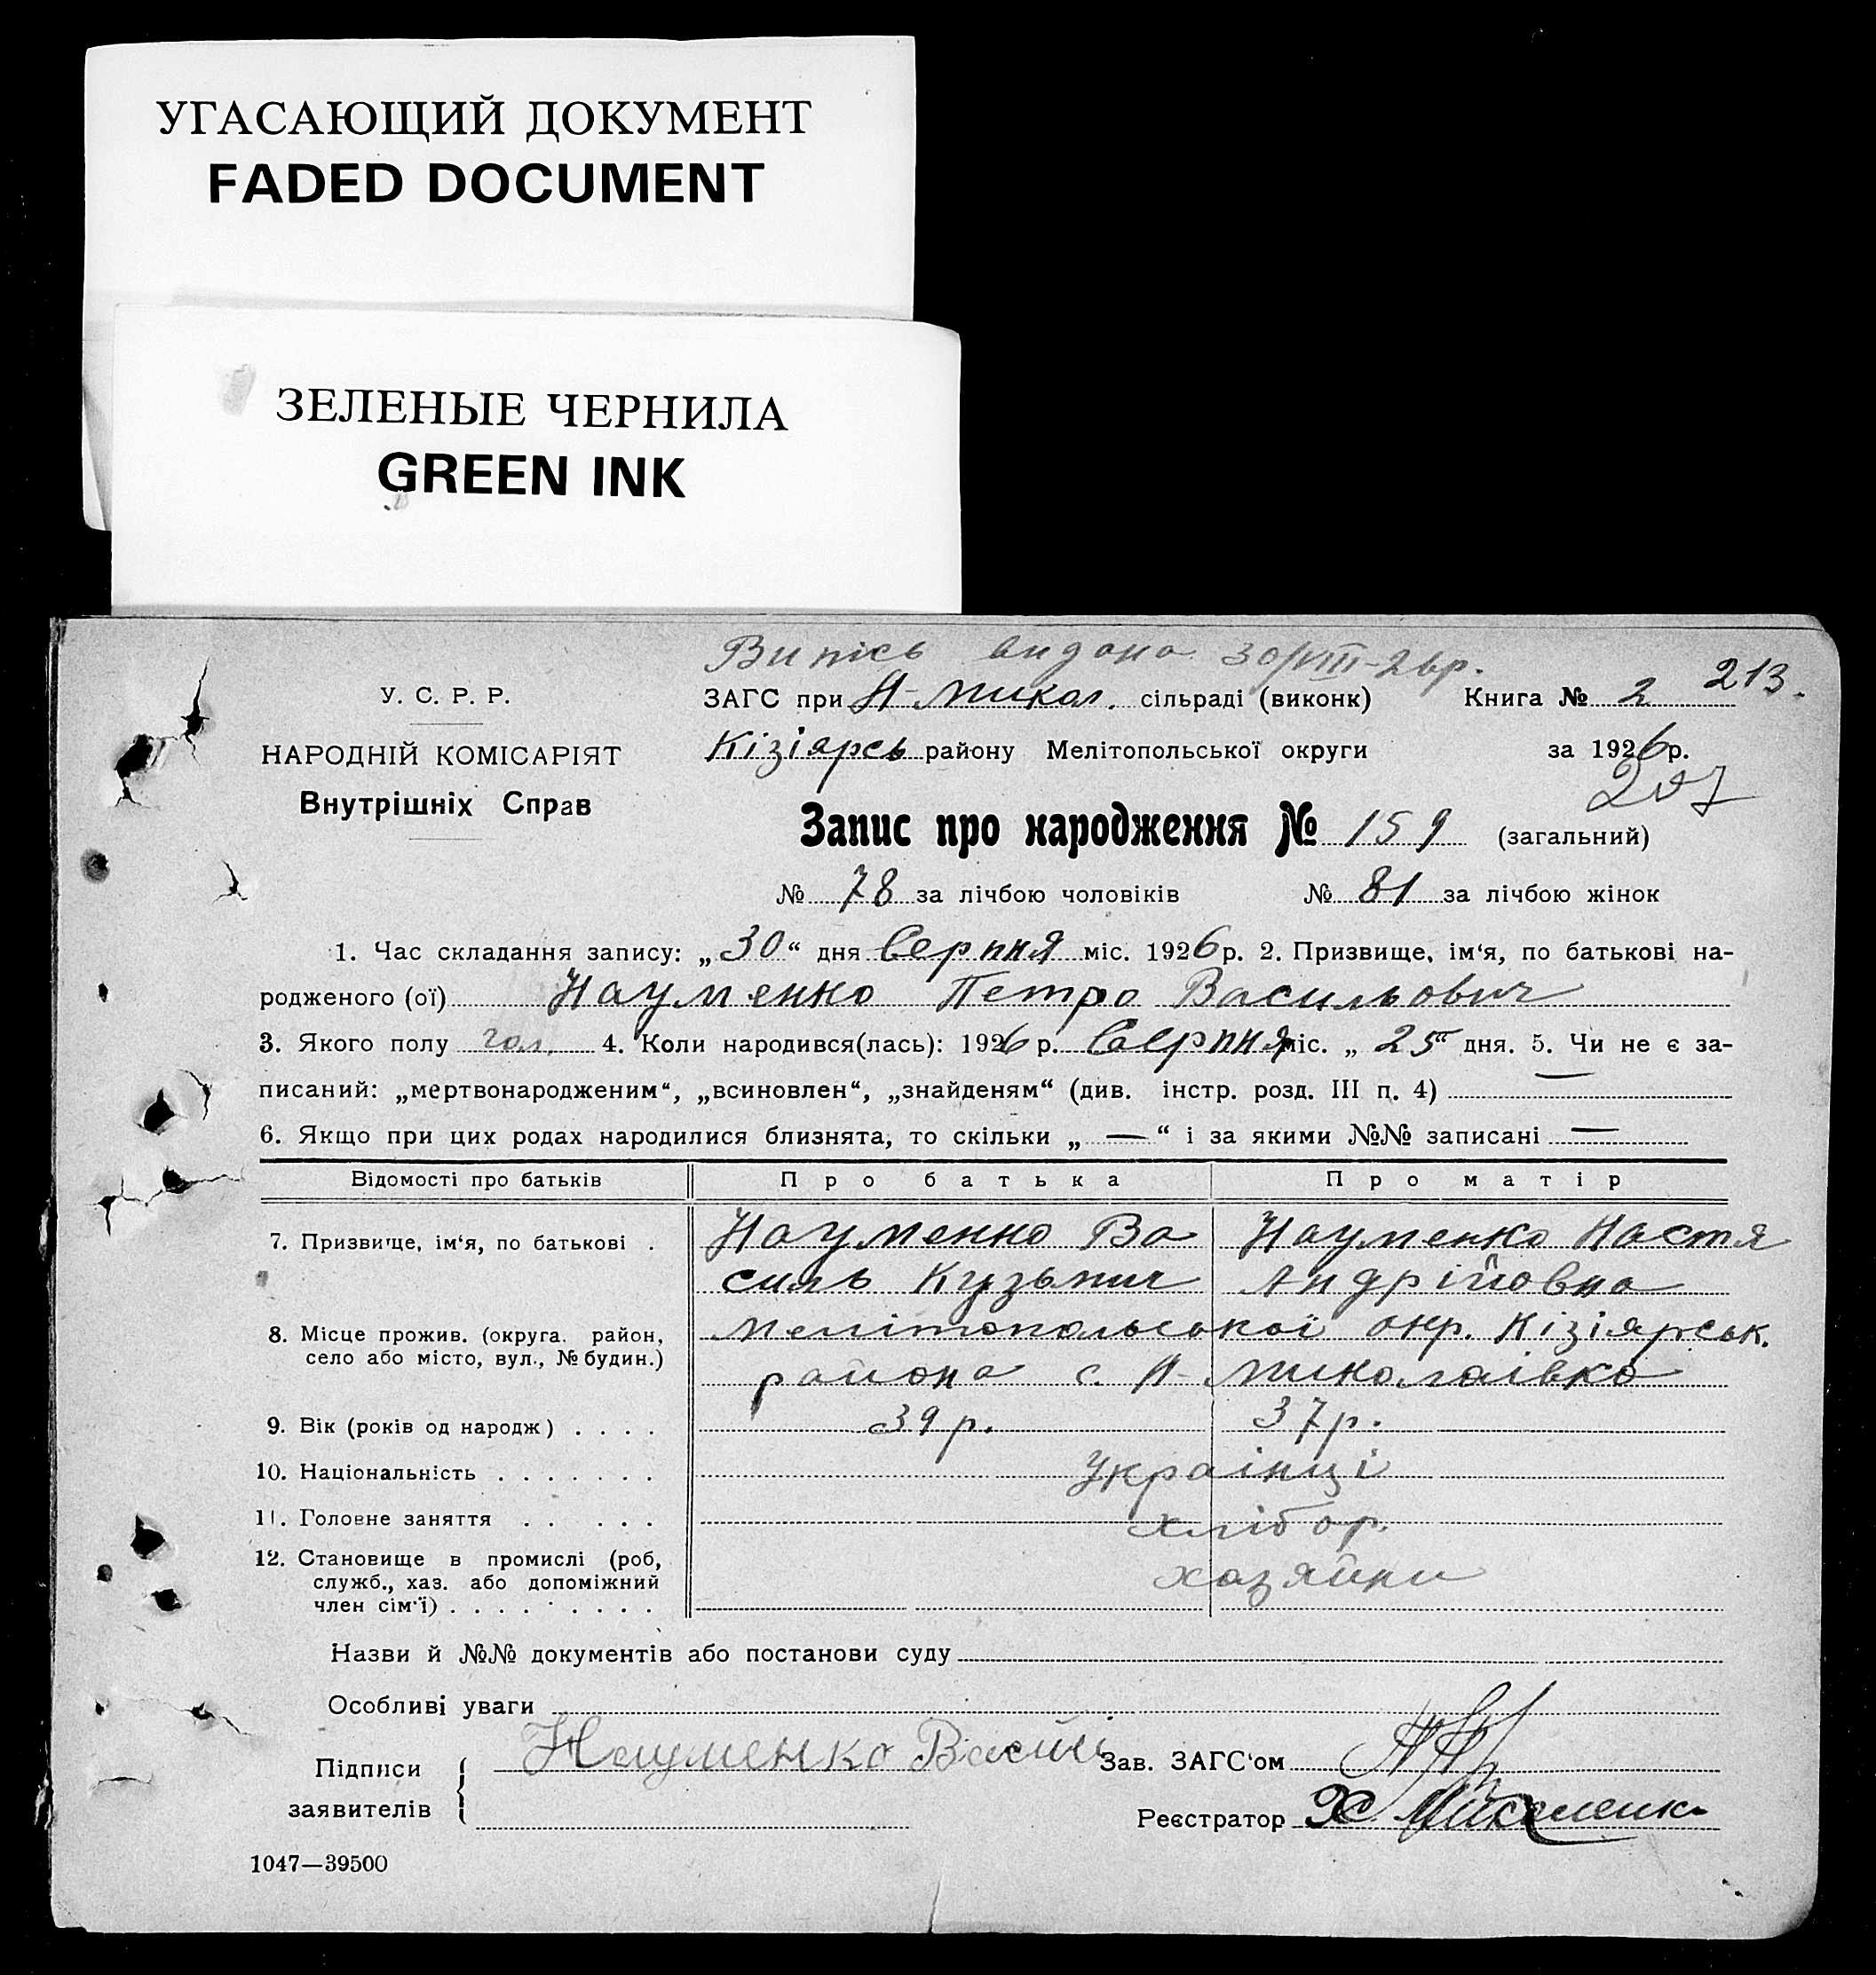 УГАСАЮЩИЙ ДОКУМЕНТ
FADED DOCUMENT
ЗЕЛЕНЫЕ ЧЕРНИЛА
GREEN INK
Випісь видана 30/VIII-26р.
213.
У. С. Р. Р.
НАРОДНІЙ КОМІСАРІЯТ
Внутрішніх Справ
ЗАГС при Н-Микол. сільраді (виконк) Книга № 2
Кізіярсь району Мелітопольської округи за 1926р.
207
Запис про народження № 159 (загальний)
№ 78 за лічбою чоловіків № 81 за лічбою жінок
1. Час складання запису: „30“ дня Серпня міс. 1926р. 2. Призвище, ім‘я, по батькові на-
родженого (ої) Науменко Петро Васильович
3. Якого полу чол. 4. Коли народився(лась): 1926 р. Серпня міс. „25“ дня. 5. Чи не є за-
писаний: „мертвонародженим“, „всиновлен“, „знайденям“ (див. інстр. розд. III п. 4) —
6. Якщо при цих родах народилися близнята, то скільки „ — “ і за якими №№ записані —
Відомості про батьків Про батька Про матір
7. Призвище, ім‘я, по батькові . Науменко Ва Науменко Настя
силь Кузьмич Андрійовна
8. Місце прожив. (округа. район, Мелітопольської окр. Кізіярськ.
село або місто, вул., № будин.) района с. Н-Миколаівка
9. Вік (років од народж) . . . . 39р. 37р.
10. Національність . . . . . . . Украінці
11. Головне заняття . . . . . хлібор.
12. Становище в промислі (роб, хазяйни
служб., хаз. або допоміжний
член сім‘ї) . . . . . . . . .
Назви й №№ документів або постанови суду
Особливі уваги
Підписи заявителів Науменко Васи Зав. ЗАГС‘ом
Реєстратор
1047—39500